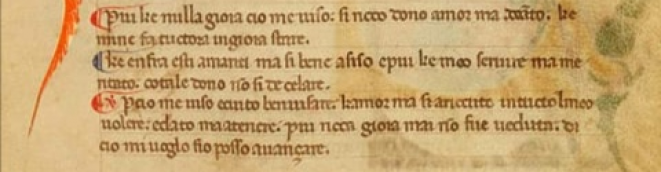 Piu ke nulla gioia cio me uiso. si ricco dono amor ma dato. ke
mine fa tuctora in gioia stare.
Ke enfra esti amanti ma si bene asiso epiu ke meo seruire ma me
ritato. cotale dono no si de celare.
Percio me uiso canto beneusare. kamor ma si aricuto intucto lmeo
uolere. edato ma atenere. piu ricca gioia mai no fue ueduta. di
cio mi uoglo sio posso auançare.